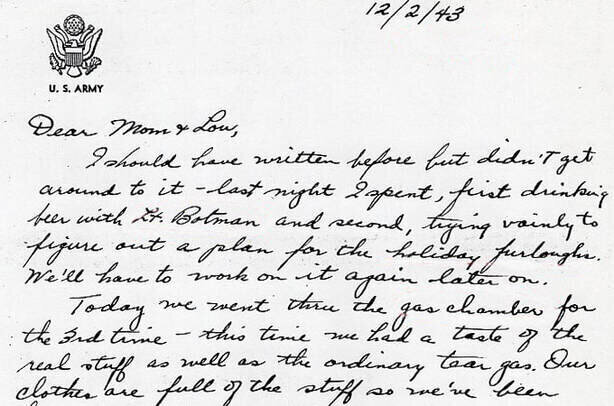 12/2/43
U. S. ARMY
Dear Mom & Lou,
I should have written before but didn't get
around to it - last night I spent, first drinking
beer with Lt. Botman and second, trying vainly to
figure out a plan for the holiday furloughs.
We'll have to work on it again later on.
Today we went thru the gas chamber for
the 3rd time - this time we had a taste of the
real stuff as well as the ordinary tear gas. Our
clothes are full of the stuff so we've been